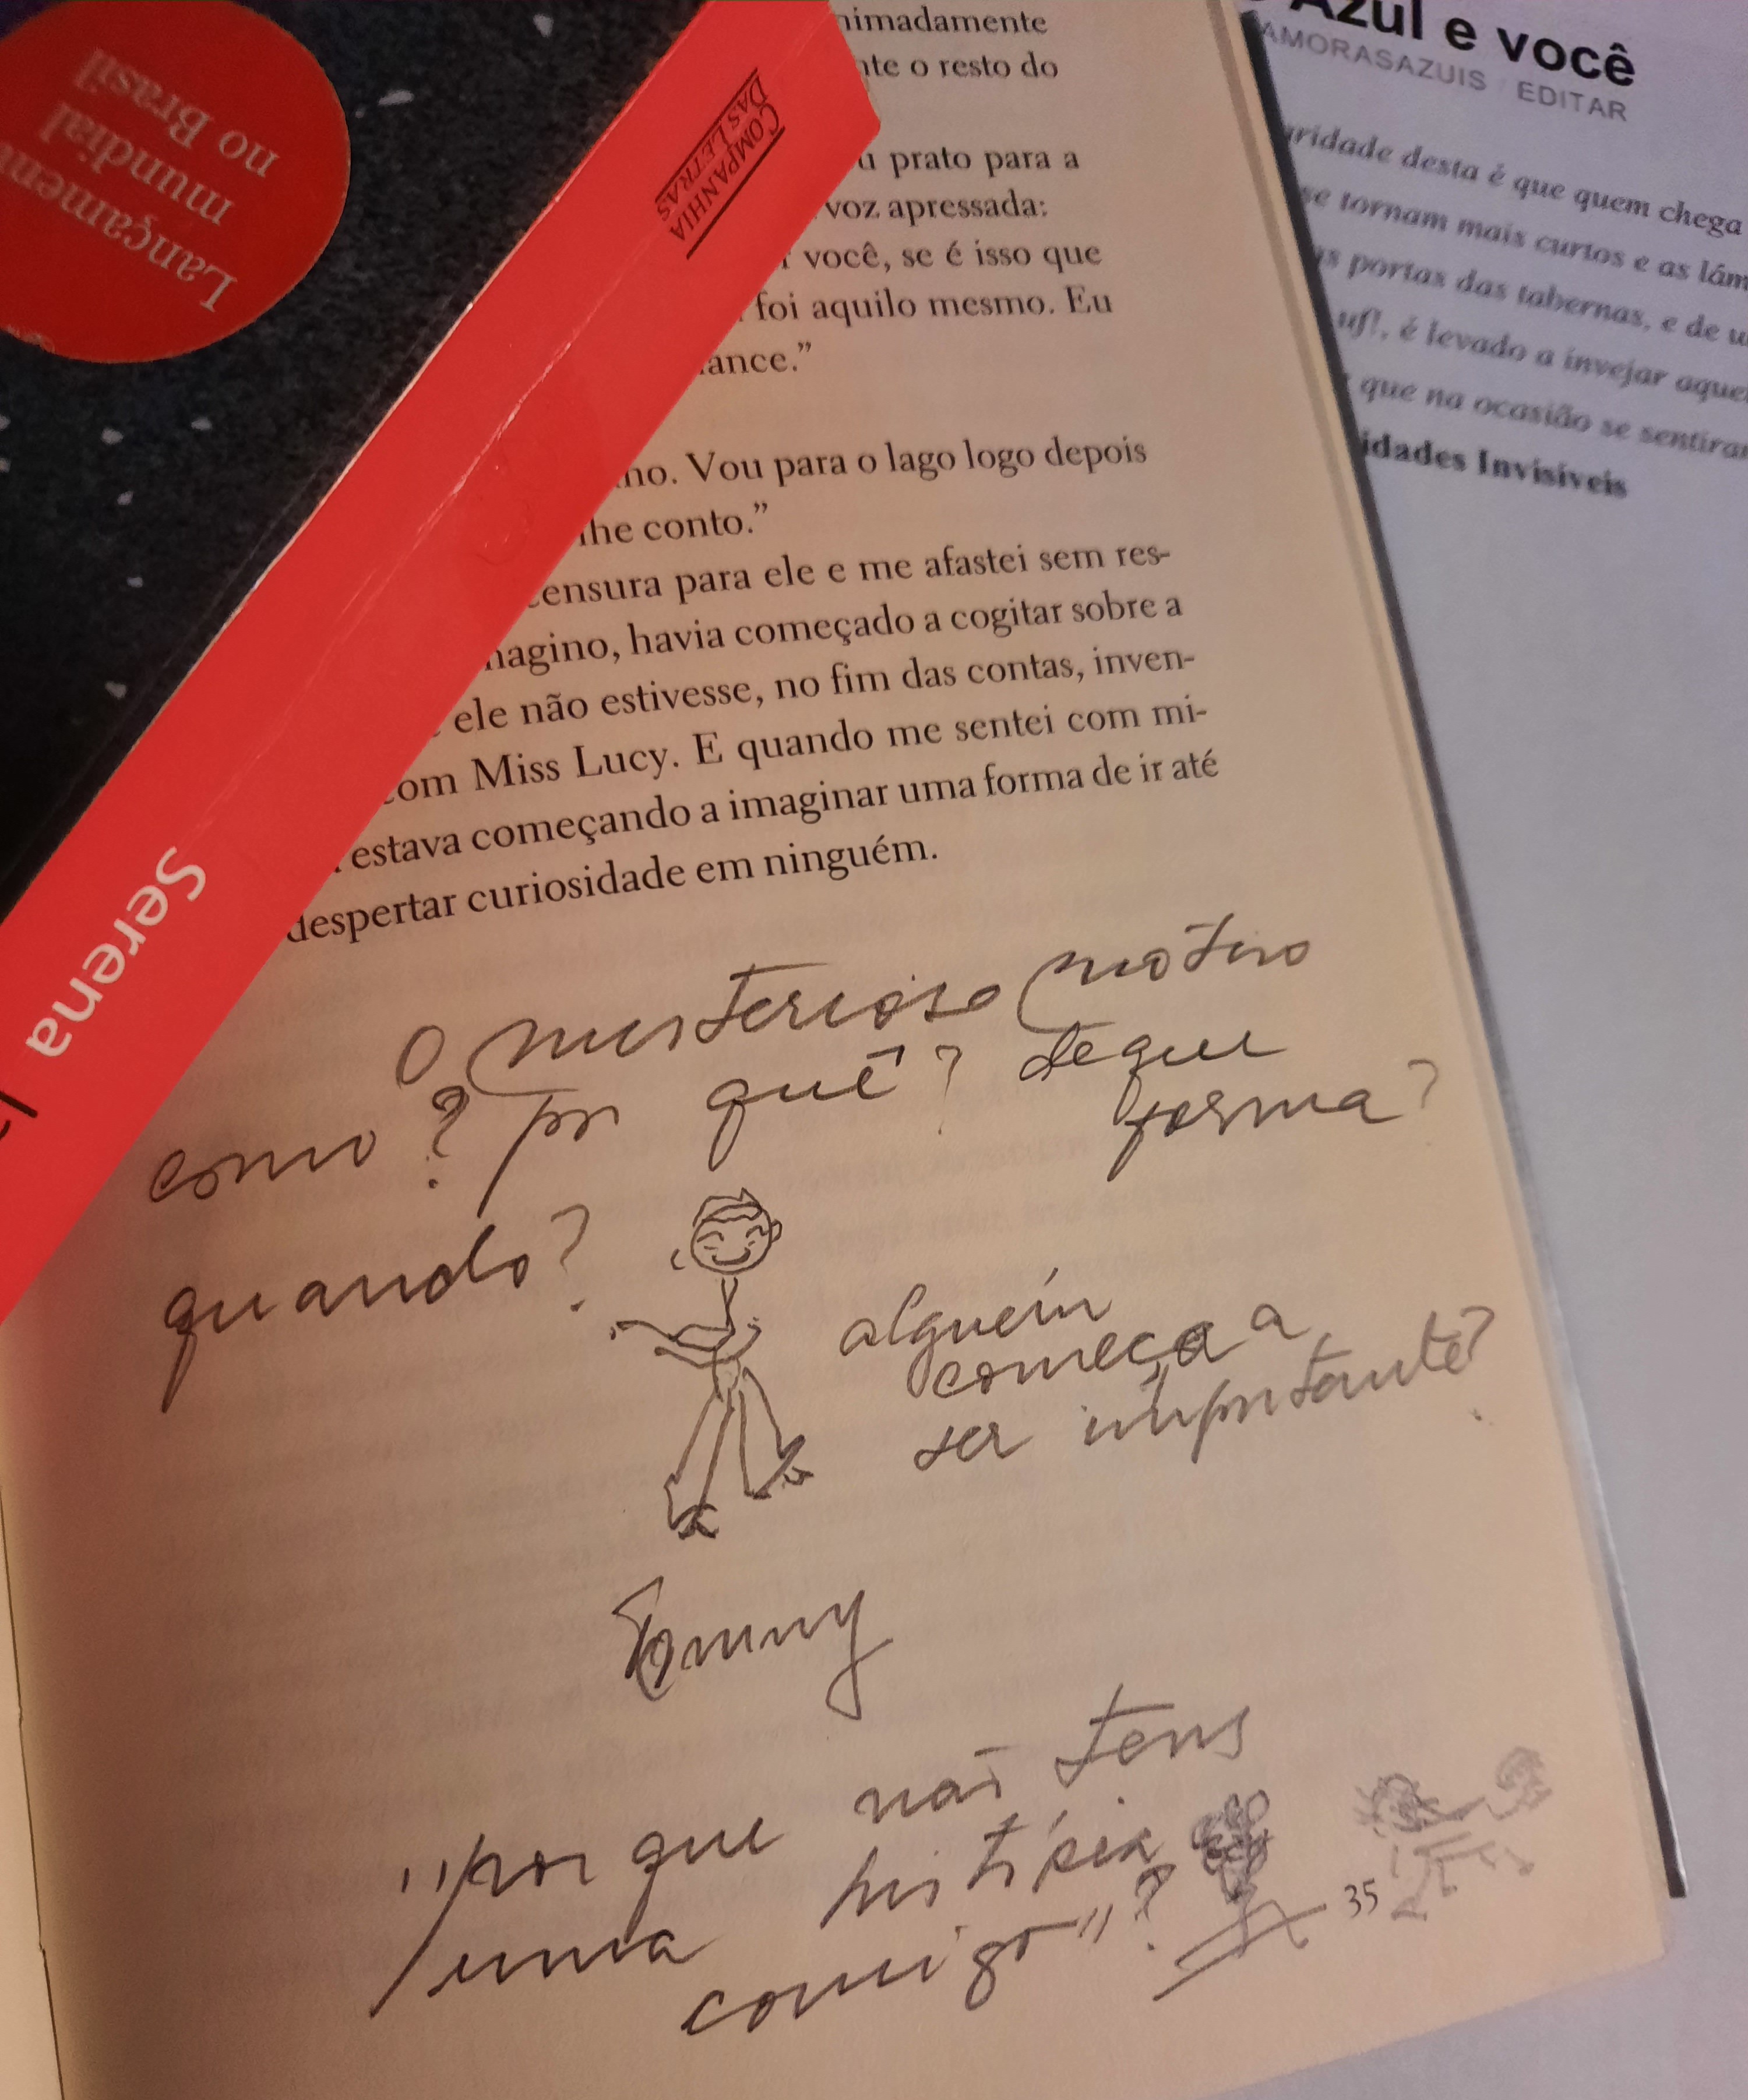 Lançamen
mundial
no Brasil
COMPANHIA
DAS LETRAS
Serena
nimadamente
nte o resto do
u prato para a
voz apressada:
r você, se é isso que
foi aquilo mesmo. Eu
ance."
no. Vou para o lago logo depois
lhe conto."
censura para ele e me afastei sem res-
nagino, havia começado a cogitar sobre a
ele não estivesse, no fim das contas, inven-
com Miss Lucy. E quando me sentei com mi-
estava começando a imaginar uma forma de ir até
despertar curiosidade em ninguém.
O misterioso motivo
como? por quê? de que
forma?
quando?
alguém
começa a
ser importante?
Tommy
"por que não tens
uma história
comigo"?
35
Azul e você
AMORASAZUIS / EDITAR
aridade desta é que quem chega
se tornam mais curtos e as lâm
as portas das tabernas, e de u
uf!, é levado a invejar aque
que na ocasião se sentira
idades Invisíveis